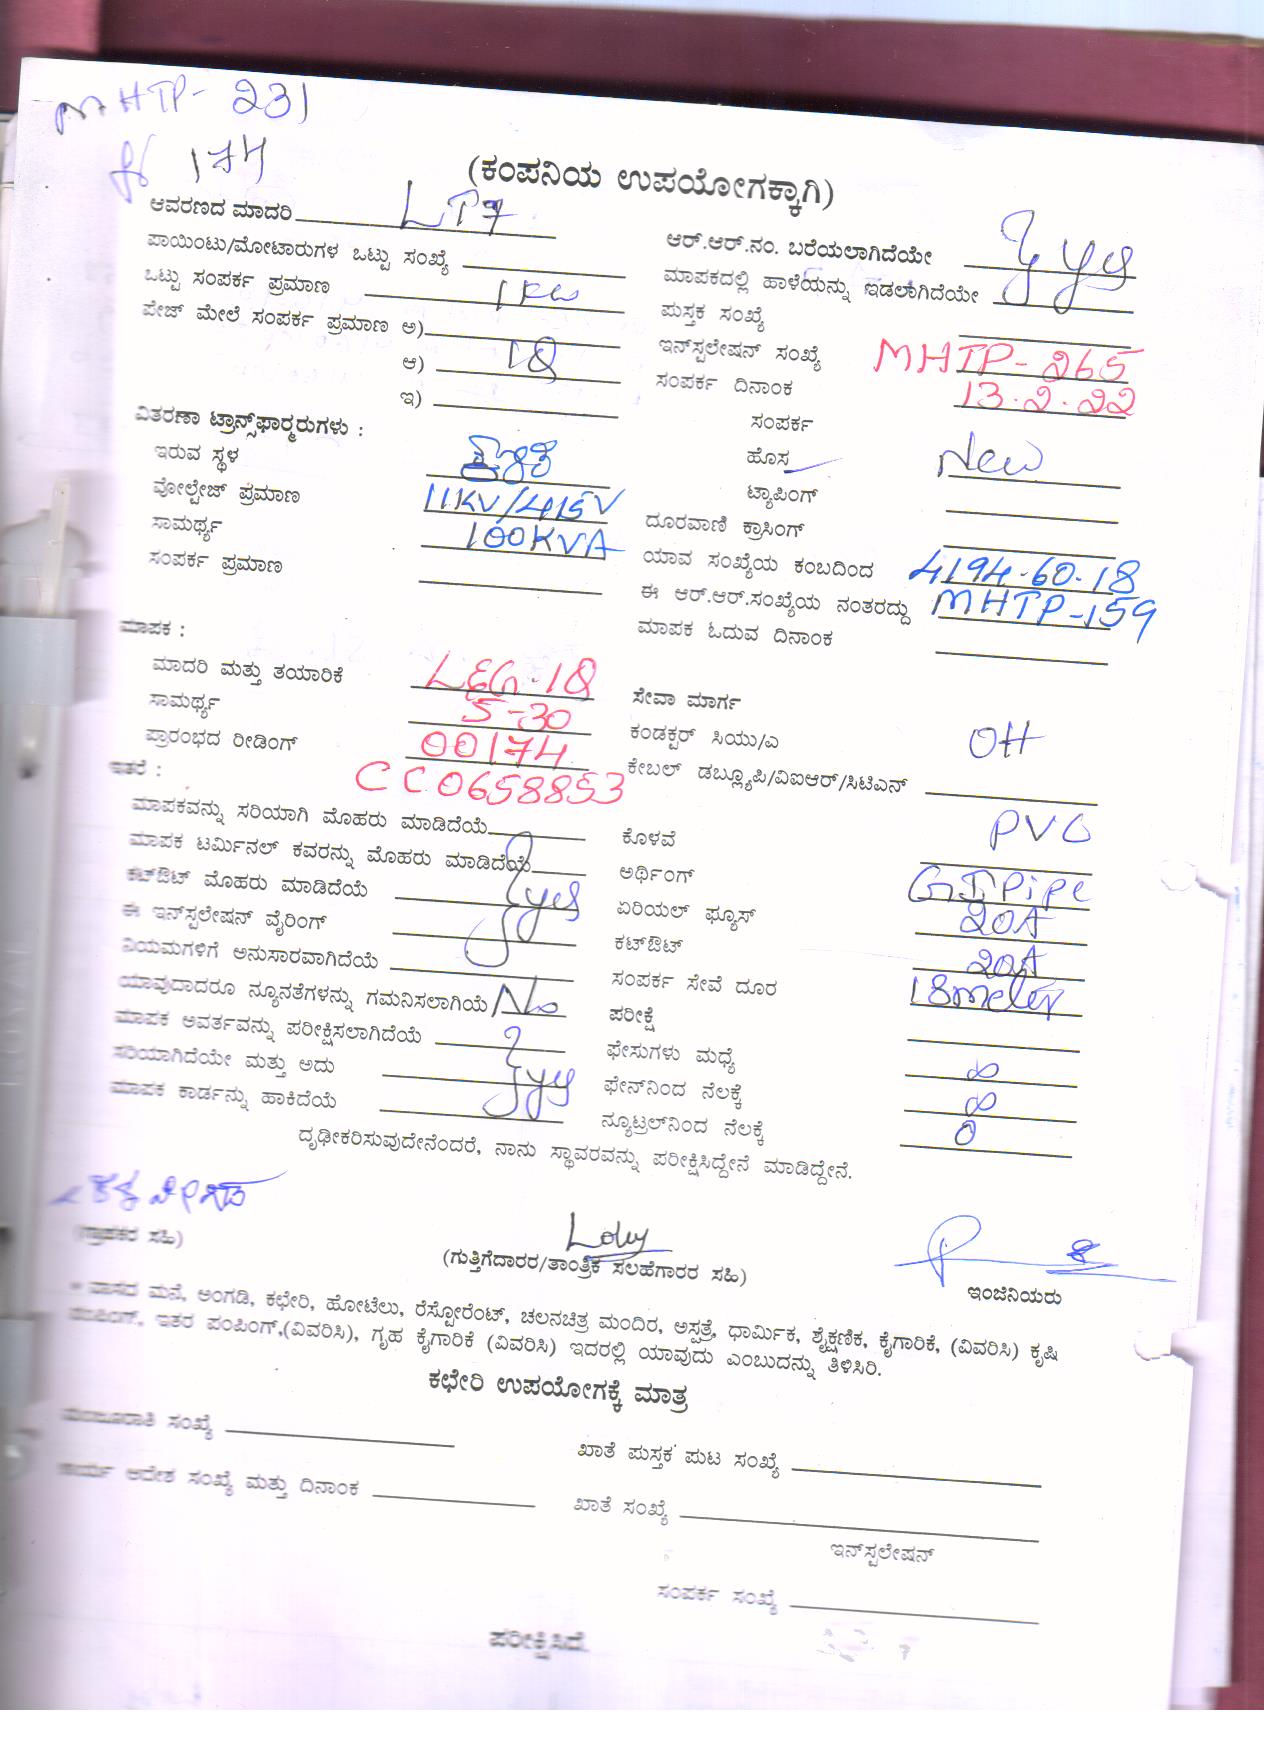 MHTP- 231
174
(ಕಂಪನಿಯ ಉಪಯೋಗಕ್ಕಾಗಿ)
ಆವರಣದ ಮಾದರಿ LT7
ಪಾಯಿಂಟು/ಮೋಟಾರುಗಳ ಒಟ್ಟು ಸಂಖ್ಯೆ
ಒಟ್ಟು ಸಂಪರ್ಕ ಪ್ರಮಾಣ 1KW
ಪೇಜ್ ಮೇಲೆ ಸಂಪರ್ಕ ಪ್ರಮಾಣ ಅ)
ಆ) 1Φ
ಇ)
ವಿತರಣಾ ಟ್ರಾನ್ಸ್‌ಫಾರ್‍ಮರುಗಳು :
ಇರುವ ಸ್ಥಳ
ವೋಲ್ಟೇಜ್ ಪ್ರಮಾಣ 11KV/415V
ಸಾಮರ್ಥ್ಯ 100KVA
ಸಂಪರ್ಕ ಪ್ರಮಾಣ
ಆರ್.ಆರ್.ನಂ. ಬರೆಯಲಾಗಿದೆಯೇ
ಮಾಪಕದಲ್ಲಿ ಹಾಳೆಯನ್ನು ಇಡಲಾಗಿದೆಯೇ } yes
ಪುಸ್ತಕ ಸಂಖ್ಯೆ
ಇನ್‌ಸ್ಟಲೇಷನ್ ಸಂಖ್ಯೆ MHTP-265
ಸಂಪರ್ಕ ದಿನಾಂಕ 13.2.22
ಸಂಪರ್ಕ
ಹೊಸ New
ಟ್ಯಾಪಿಂಗ್
ದೂರವಾಣಿ ಕ್ರಾಸಿಂಗ್
ಯಾವ ಸಂಖ್ಯೆಯ ಕಂಬದಿಂದ 4194-60-18
ಈ ಆರ್.ಆರ್.ಸಂಖ್ಯೆಯ ನಂತರದ್ದು MHTP-159
ಮಾಪಕ ಓದುವ ದಿನಾಂಕ
ಮಾಪಕ :
ಮಾದರಿ ಮತ್ತು ತಯಾರಿಕೆ L&G-1Φ
ಸಾಮರ್ಥ್ಯ 5-30
ಪ್ರಾರಂಭದ ರೀಡಿಂಗ್ 00174
ಇತರೆ : CC0658853
ಮಾಪಕವನ್ನು ಸರಿಯಾಗಿ ಮೊಹರು ಮಾಡಿದೆಯೆ
ಮಾಪಕ ಟರ್ಮಿನಲ್ ಕವರನ್ನು ಮೊಹರು ಮಾಡಿದೆಯೆ
ಕಟ್‌ಔಟ್ ಮೊಹರು ಮಾಡಿದೆಯೆ } yes
ಈ ಇನ್‌ಸ್ಟಲೇಷನ್ ವೈರಿಂಗ್
ನಿಯಮಗಳಿಗೆ ಅನುಸಾರವಾಗಿದೆಯೆ
ಯಾವುದಾದರೂ ನ್ಯೂನತೆಗಳನ್ನು ಗಮನಿಸಲಾಗಿಯೆ No
ಮಾಪಕ ಅವರ್ತವನ್ನು ಪರೀಕ್ಷಿಸಲಾಗಿದೆಯೆ
ಸರಿಯಾಗಿದೆಯೇ ಮತ್ತು ಅದು } yes
ಮಾಪಕ ಕಾರ್ಡನ್ನು ಹಾಕಿದೆಯೆ
ಸೇವಾ ಮಾರ್ಗ
ಕಂಡಕ್ಟರ್ ಸಿಯು/ಎ OH
ಕೇಬಲ್ ಡಬ್ಲ್ಯೂಪಿ/ವಿಐಆರ್/ಸಿಟಿಎನ್
ಕೊಳವೆ PVC
ಅರ್ಥಿಂಗ್ GI Pipe
ಏರಿಯಲ್ ಫ್ಯೂಸ್ 20A
ಕಟ್‌ಔಟ್ 20A
ಸಂಪರ್ಕ ಸೇವೆ ದೂರ 18meter
ಪರೀಕ್ಷೆ
ಫೇಸುಗಳು ಮಧ್ಯೆ ∞
ಫೇನ್‌ನಿಂದ ನೆಲಕ್ಕೆ ∞
ನ್ಯೂಟ್ರಲ್‌ನಿಂದ ನೆಲಕ್ಕೆ 0
ದೃಢೀಕರಿಸುವುದೇನೆಂದರೆ, ನಾನು ಸ್ಥಾವರವನ್ನು ಪರೀಕ್ಷಿಸಿದ್ದೇನೆ ಮಾಡಿದ್ದೇನೆ.
(ಗ್ರಾಹಕರ ಸಹಿ)
(ಗುತ್ತಿಗೆದಾರರ/ತಾಂತ್ರಿಕ ಸಲಹೆಗಾರರ ಸಹಿ)
ಇಂಜಿನಿಯರು
* ವಾಸದ ಮನೆ, ಅಂಗಡಿ, ಕಛೇರಿ, ಹೋಟೆಲು, ರೆಸ್ಟೋರೆಂಟ್, ಚಲನಚಿತ್ರ ಮಂದಿರ, ಅಸ್ಪತ್ರೆ, ಧಾರ್ಮಿಕ, ಶೈಕ್ಷಣಿಕ, ಕೈಗಾರಿಕೆ, (ವಿವರಿಸಿ) ಕೃಷಿ
ಪಂಪಿಂಗ್, ಇತರ ಪಂಪಿಂಗ್,(ವಿವರಿಸಿ), ಗೃಹ ಕೈಗಾರಿಕೆ (ವಿವರಿಸಿ) ಇದರಲ್ಲಿ ಯಾವುದು ಎಂಬುದನ್ನು ತಿಳಿಸಿರಿ.
ಕಛೇರಿ ಉಪಯೋಗಕ್ಕೆ ಮಾತ್ರ
ಮಂಜೂರಾತಿ ಸಂಖ್ಯೆ
ಖಾತೆ ಪುಸ್ತಕ ಪುಟ ಸಂಖ್ಯೆ
ಕಾರ್ಯ ಆದೇಶ ಸಂಖ್ಯೆ ಮತ್ತು ದಿನಾಂಕ
ಖಾತೆ ಸಂಖ್ಯೆ
ಇನ್‌ಸ್ಟಲೇಷನ್
ಸಂಪರ್ಕ ಸಂಖ್ಯೆ
ಪರೀಕ್ಷಿಸಿದೆ.